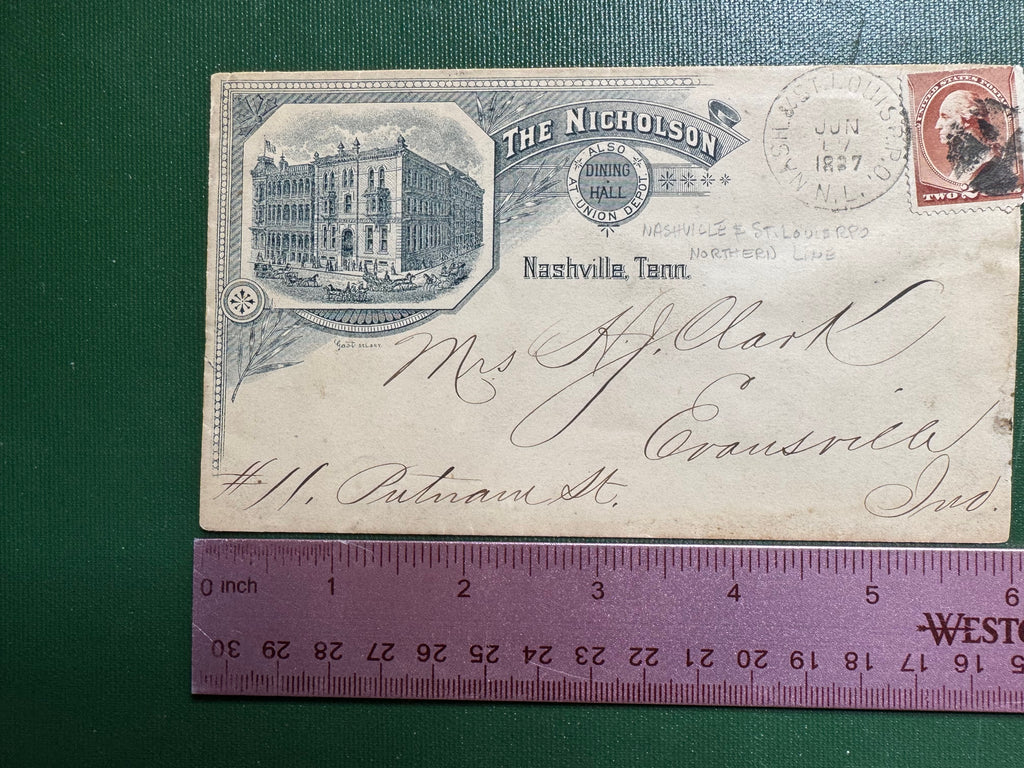 THE NICHOLSON
ALSO
DINING
HALL
AT UNION DEPOT
Nashville, Tenn.
NASH. & ST. LOUIS R.P.O.
JUN
17
1887
N.L.
UNITED STATES POSTAGE
TWO 2
NASHVILLE & ST. LOUIS RPO
NORTHERN LINE
Mrs H. J. Clark
Evansville
#11. Putnam St.
Ind.
0 inch 1 2 3 4 5 6
WESTC
30 29 28 27 26 25 24 23 22 21 20 19 18 17 16 15